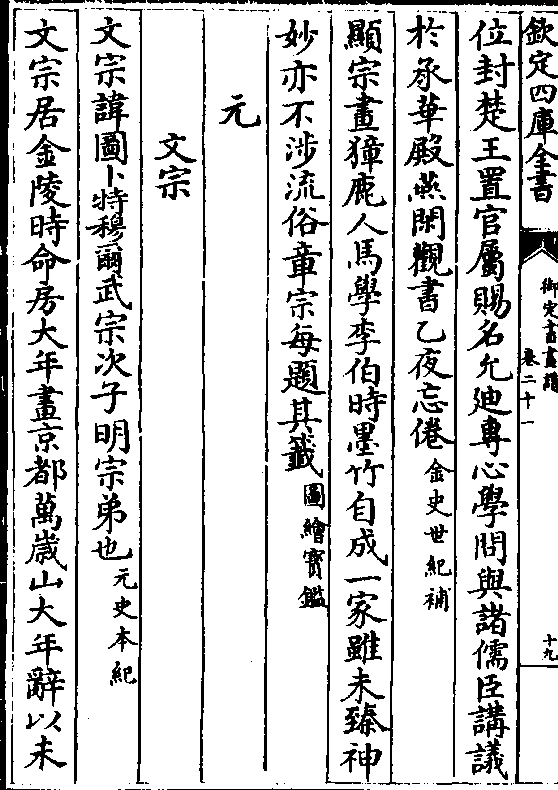 欽定四庫全書
御定書畫譜
卷二十一
十九
位封楚王置官屬賜名允迪專心學問與諸儒臣講議
於承華殿燕閑觀書乙夜忘倦金史世紀補
顯宗畫獐鹿人馬學李伯時墨竹自成一家雖未臻神
妙亦不涉流俗章宗每題其籖圖繪寳鑑
元
文宗
文宗諱圖卜特穆爾武宗次子明宗弟也元史本紀
文宗居金陵時命房大年畫京都萬歲山大年辭以未